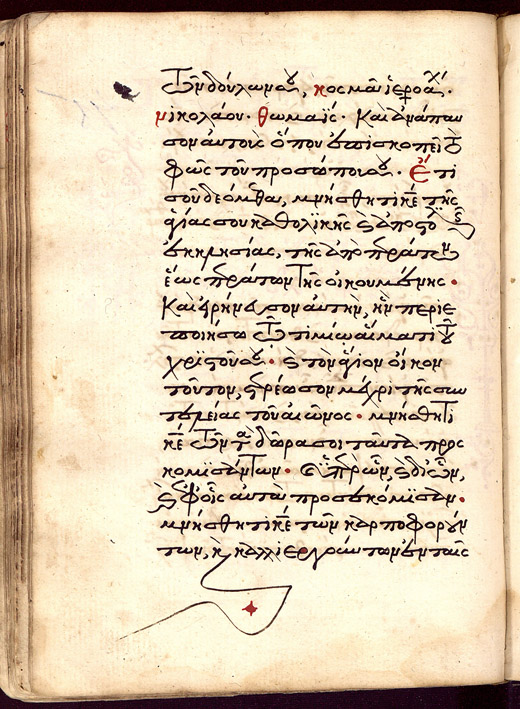 τῶν δούλων σου, κοσμᾶ ἱερο
νικολάου· θωμαΐς· Καὶ ἀνάπαυ
σον αὐτοὺς ὅπου ἐπισκοπεῖ τὸ
φῶς τοῦ προσώπου σου· Ἔτι
σοῦ δεόμεθα, μνήσθητι κε τῆς
ἁγίας σου καθολικῆς καὶ ἀποστολικῆς
ἐκκλησίας, τῆς ἀπὸ περάτων
ἕως περάτων τῆς οἰκουμένης·
Καὶ εἰρήνευσον αὐτὴν, ἣν περιε
ποιήσω τῶ τιμίω αἵματι τοῦ
χριστοῦ σου· καὶ τὸν ἅγιον οἶκον
τοῦτον, στερέωσον μέχρι τῆς συν
τελείας τοῦ αἰῶνος· μνήσθητι
κε τῶν τὰ δῶρα σοι ταῦτα προσ
κομισάντων· ὑπὲρ ὧν, καὶ δι ὧν,
καὶ ἐφ οἷς αὐτὰ προσεκόμισαν·
μνήσθητι κε τῶν καρποφορούν
των, καὶ καλλιεργούντων ἐν ταῖς